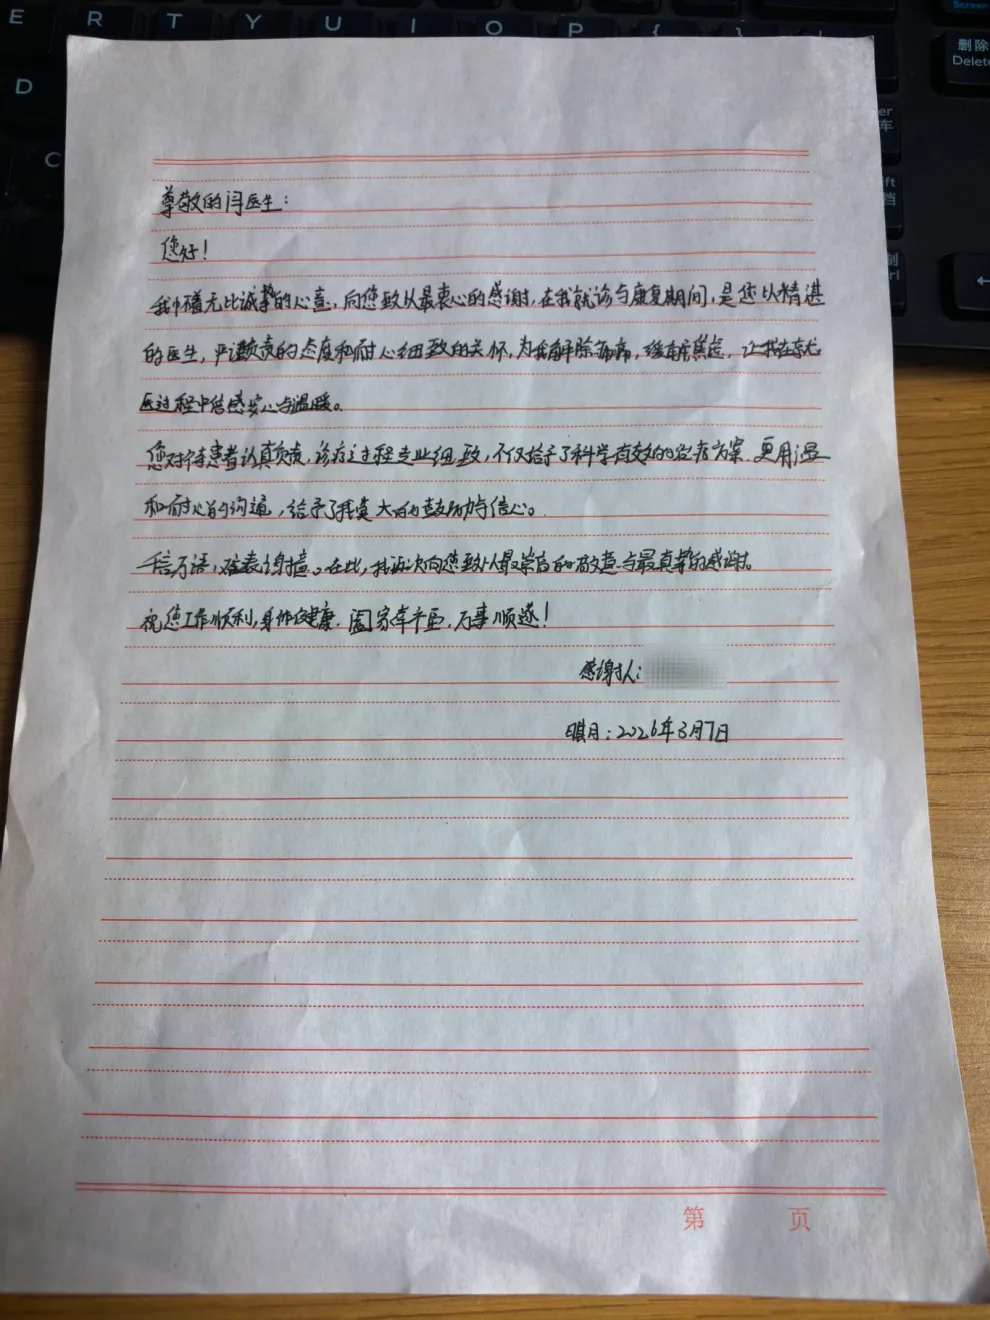 E R T Y U I O P { }
D
C
删除
Delete
尊敬的闫医生：
您好！
我怀着无比诚挚的心意，向您致以最衷心的感谢，在我就诊与康复期间，是您以精湛
的医生，严谨负责的态度和耐心细致的关怀，为我解除病痛，缓解焦虑，让我在就
医过程中倍感安心与温暖。
您对待患者认真负责，诊疗过程专业细致，不仅给予了科学有效的治疗方案，更用温
和耐心的沟通，给予了我莫大的鼓励与信心。
千言万语，难表谢意。在此，我再次向您致以最崇高的敬意与最真挚的感谢。
祝您工作顺利，身体健康，阖家幸福，万事顺遂！
感谢人：
日期：2026年3月7日
第 页